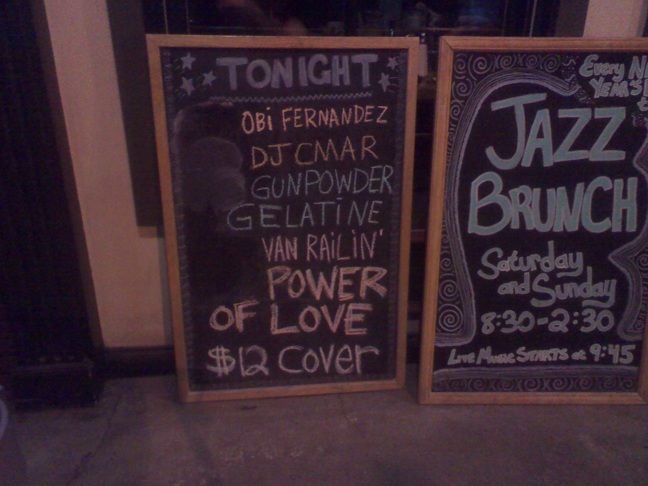 TONIGHT
OBi FERNANDEZ
DJ CMAR
GUNPOWDER
GELATiNE
VAN RAiLiN'
POWER
OF LOVE
$12 COVER
Every
YEARS
JAZZ
BRUNCH
Saturday
and Sunday
8:30-2:30
LIVE MUSIC STARTS at 9:45